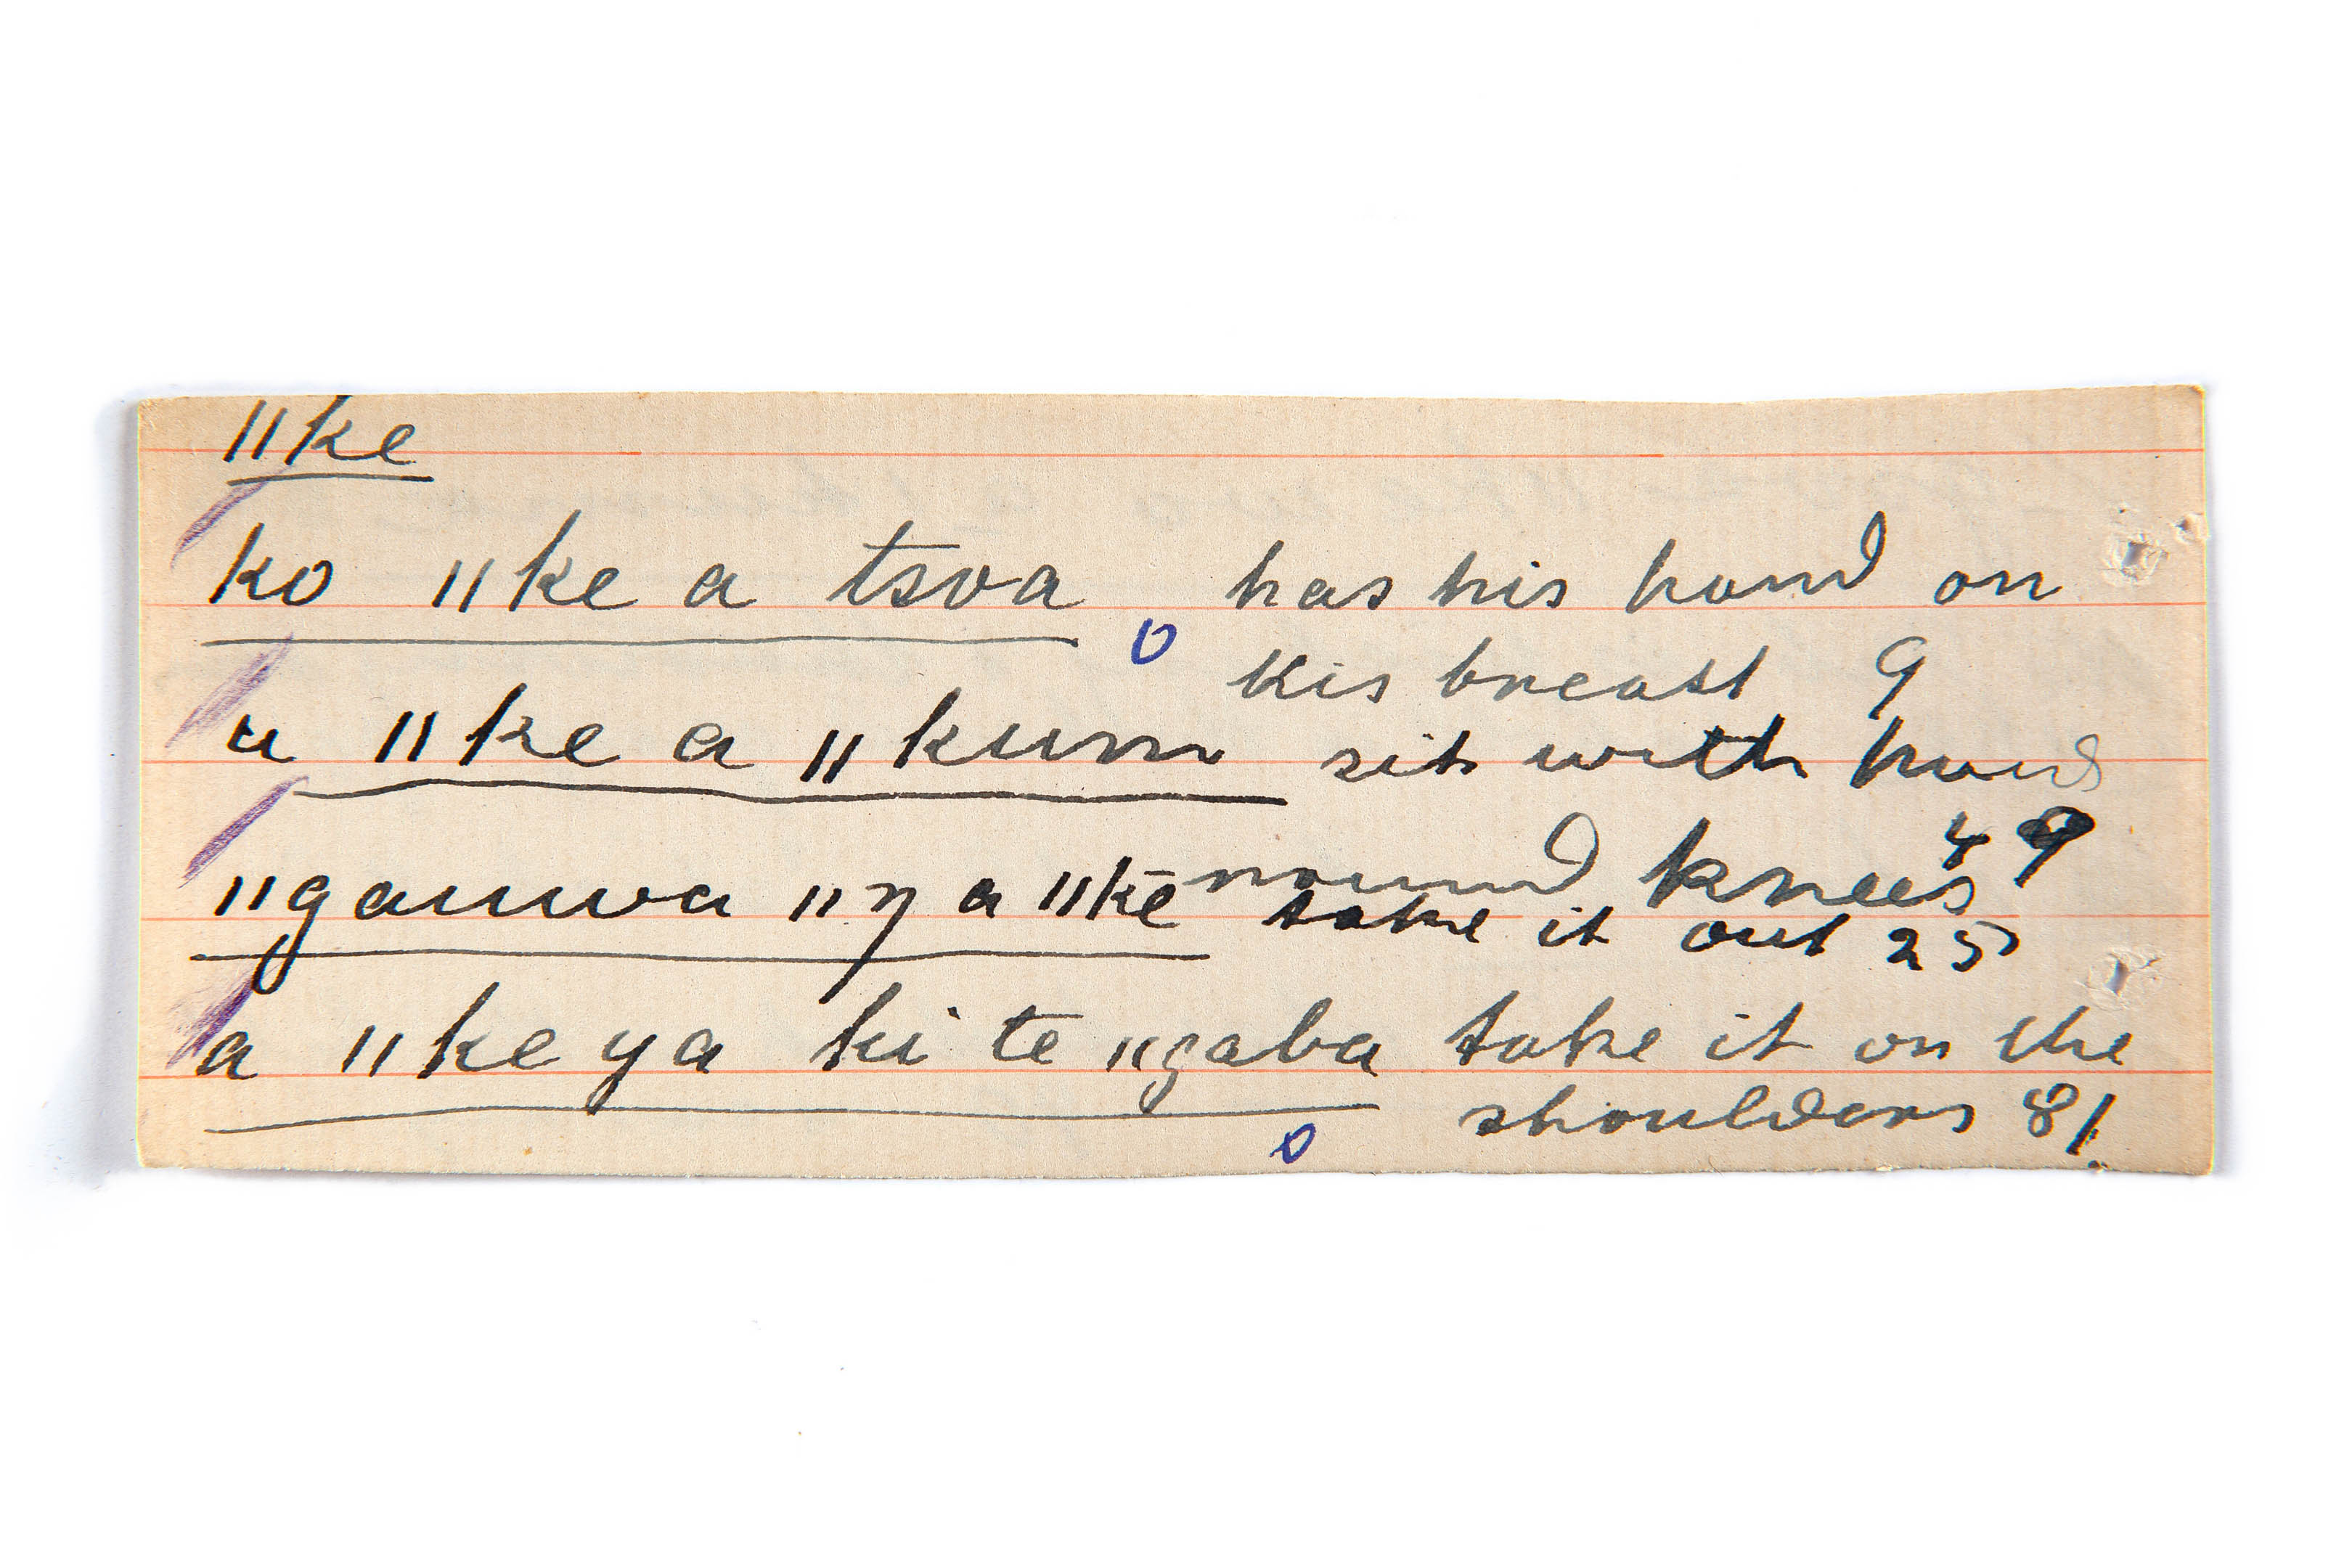 ǁke
ko ǁke a tsva has his hand on
his breast 9
u ǁke a ǁkum sits with hand
round knees 49
ǁgauwa ǁŋ a ǁkē take it out 25
a ǁke ya ki te ǁgaba take it on the
shoulders 81